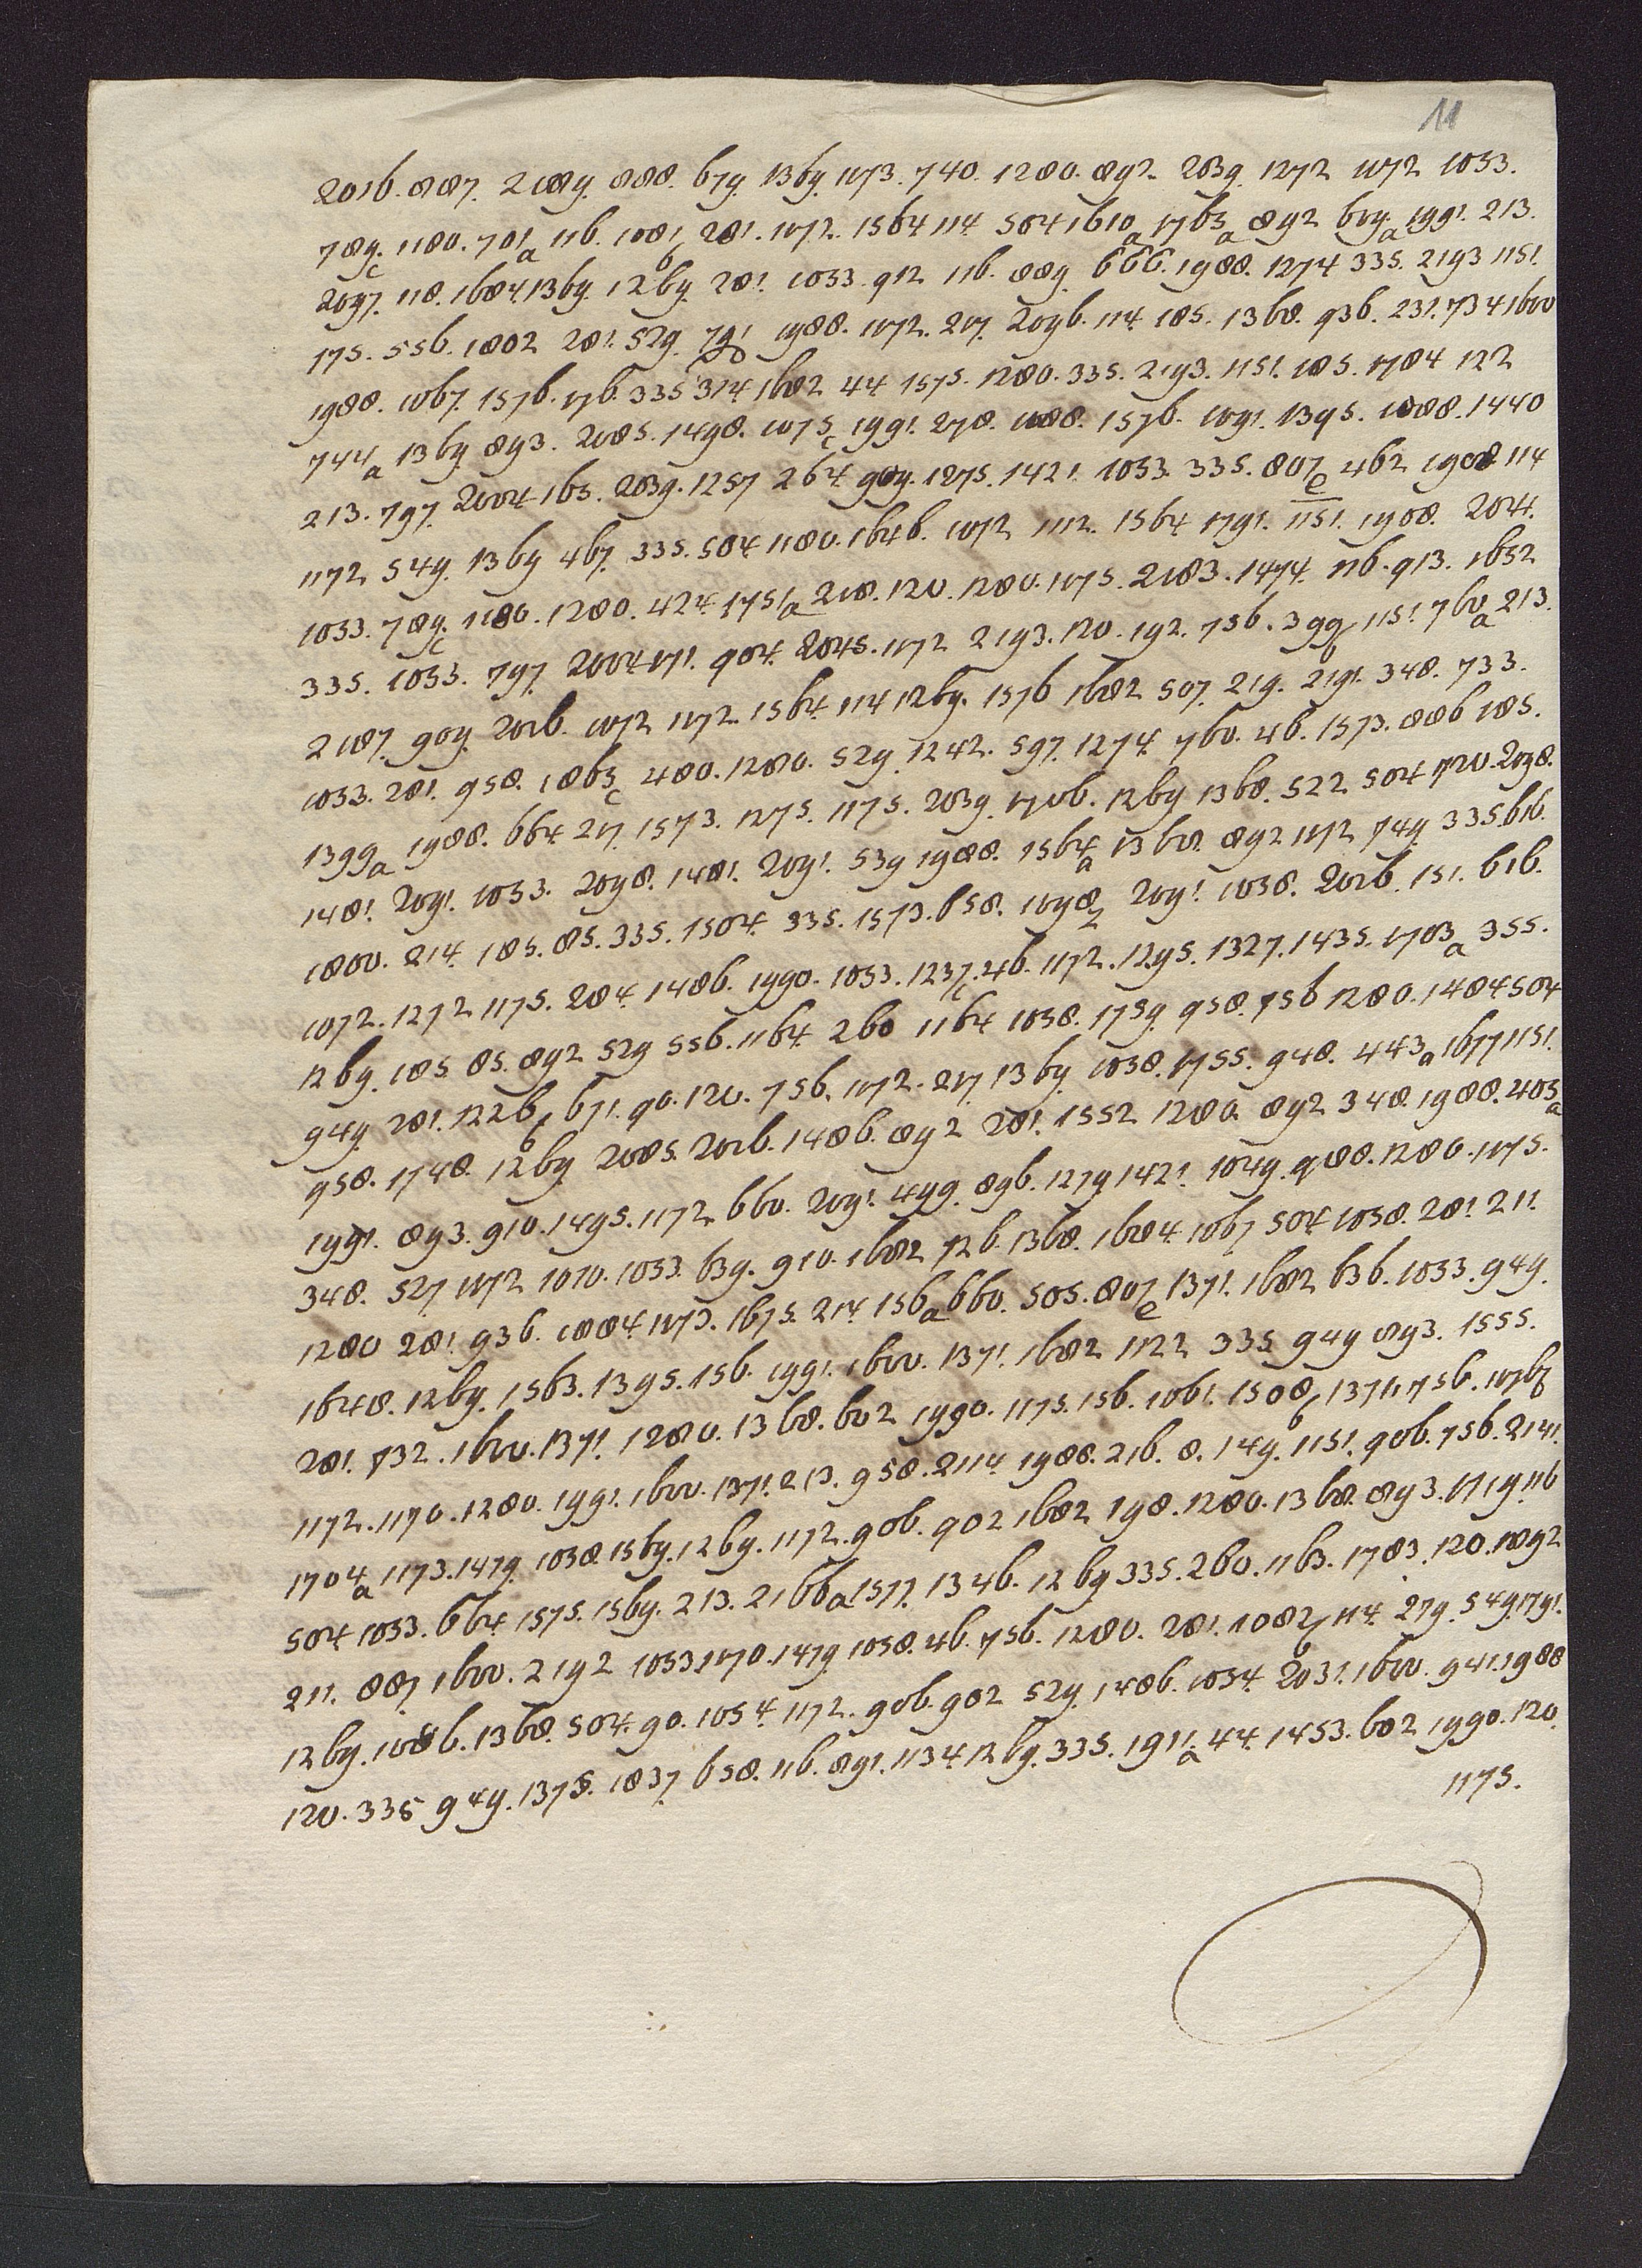 11
2016. 887. 2189. 888. 679. 1369. 1173. 740. 1280. 892. 2039. 1272 1172 1033.
789c. 1180. 701a 116. 1081b 281. 1172. 1564 114 504 1610a 1763a 892 609a 1991. 213.
2097. 118. 1684. 1369. 1269. 281. 1033. 912 116. 889. 666. 1988. 1274 335. 2193 1151.
175. 556. 1802 281. 529. 791 1988. 1172. 217. 2096. 114. 185. 1368. 936. 231. 734 1600
1988. 1067. 1576. 176. 335 314. 1682 44 1575. 1280. 335. 2193. 1151. 185. 1784 122
744a 1369 893. 2085. 1498. 1075c 1991. 278. 1088. 1576. 1091. 1395. 1088. 1440
213. 797. 2004 163. 2039. 1257 264. 909. 1275. 1421. 1033. 335. 807e 462 1908 114
1172 549. 1369 467. 335. 504 1180. 1646. 1072 1112. 1564 1791. 1151. 1908. 2041.
1033. 789c. 1180. 1280. 424. 1751a 218. 120. 1280. 1175. 2183. 1474. 116. 913. 1652
335. 1033. 797. 2004 171. 904. 2045. 1172 2193. 120. 192. 756. 399b 1151. 760a 213.
2187. 909. 2026. 1072 1172. 1564. 114 1269. 1576 1682 507. 219. 2191. 348. 733.
1033. 281. 958. 1863c 480. 1280. 529. 1242. 597. 1274. 760. 46. 1573. 886 185.
1399a 1988. 664 217. 1573. 1275. 1175. 2039. 1706. 1269 1368. 522 504 1120. 2038.
1481. 2091. 1033. 2098. 1481. 2091. 539 1988. 1564a 1368. 892 1172 749. 335. 616.
1800. 214. 185. 85. 335. 1504. 335. 1573. 658. 1098z 2091. 1038. 2026. 151. 616.
1072. 1272 1175. 284. 1486. 1990. 1033. 1237c. 46. 1172. 1295. 1327. 1435. 1703a 355.
1269. 185. 85. 892 529 556. 1164. 260 1164 1038. 1759. 958. 756 1280. 1484 504
949. 281. 1226b 671. 90. 120. 756. 1172. 217 1369 1038. 1755. 948. 443a 1677 1151.
958. 1748. 1269 2085. 2026. 1486. 892 281. 1552 1280. 892 348. 1988. 403a
1991. 893. 910. 1495. 1172 660. 2091. 499. 896. 1279 1421. 1049. 988. 1280. 1175.
348. 527 1172 1010. 1033. 639. 910. 1682 126. 1368. 1684. 1067 504 1038. 281. 211.
1280 281. 936. 1884. 1173. 1675. 214. 156a 660. 505. 807e 1371. 1682 636. 1033. 949.
1648. 1269. 1563. 1395. 156. 1991. 1600. 1371. 1682 1122 335 949 893. 1555.
281. 732. 1600. 1371. 1280. 1368. 602 1990. 1175. 156. 1061. 1508b 1371. 756. 1767
1172. 1170. 1280. 1991. 1600. 1371. 213. 958. 2114. 1988. 216. 8. 149. 1151. 906. 756. 2141.
1704a 1173. 1479. 1038. 1569. 1269. 1172. 906. 902 1682 198. 1280. 1368. 893. 1719. 116
504 1033. 664 1575. 1569. 213. 2166a 1577. 1346. 1269 335. 260. 1163. 1783. 120. 1892
211. 887 1600. 2192 1033. 1170. 1479 1038. 46. 756. 1280. 281. 1082b 114. 279. 549. 1791.
1269. 1086. 1368. 504. 90. 1054. 1172. 906. 982 529. 1486. 1034. 2031. 1600. 941. 1988
120. 335 949. 1375. 1837. 658. 116. 891. 1134. 1269. 335. 1911a 44. 1453. 602 1990. 120.
1175.